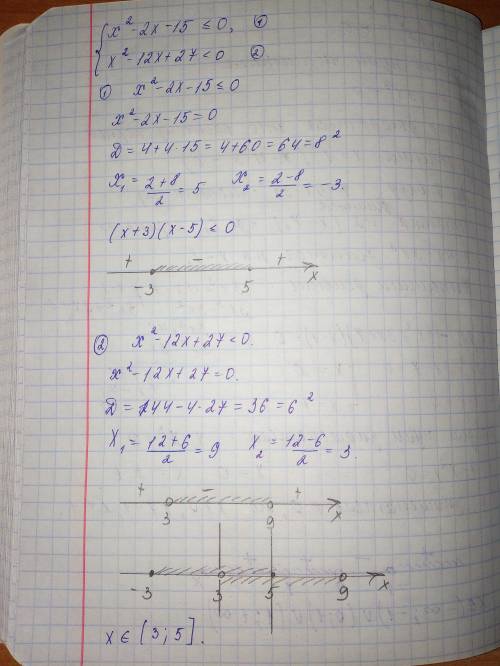 { x² - 2x - 15 ≤ 0, ①
x² - 12x + 27 < 0 ②
① x² - 2x - 15 ≤ 0
x² - 2x - 15 = 0
D = 4 + 4 · 15 = 4 + 60 = 64 = 8²
x₁ = (2+8)/2 = 5 x₂ = (2-8)/2 = -3.
(x+3)(x-5) ≤ 0
+ - +
-3 5 x
② x² - 12x + 27 < 0.
x² - 12x + 27 = 0.
D = 144 - 4 · 27 = 36 = 6²
x₁ = (12+6)/2 = 9 x₂ = (12-6)/2 = 3.
+ - +
3 9 x
-3 3 5 9 x
x ∈ (3; 5].